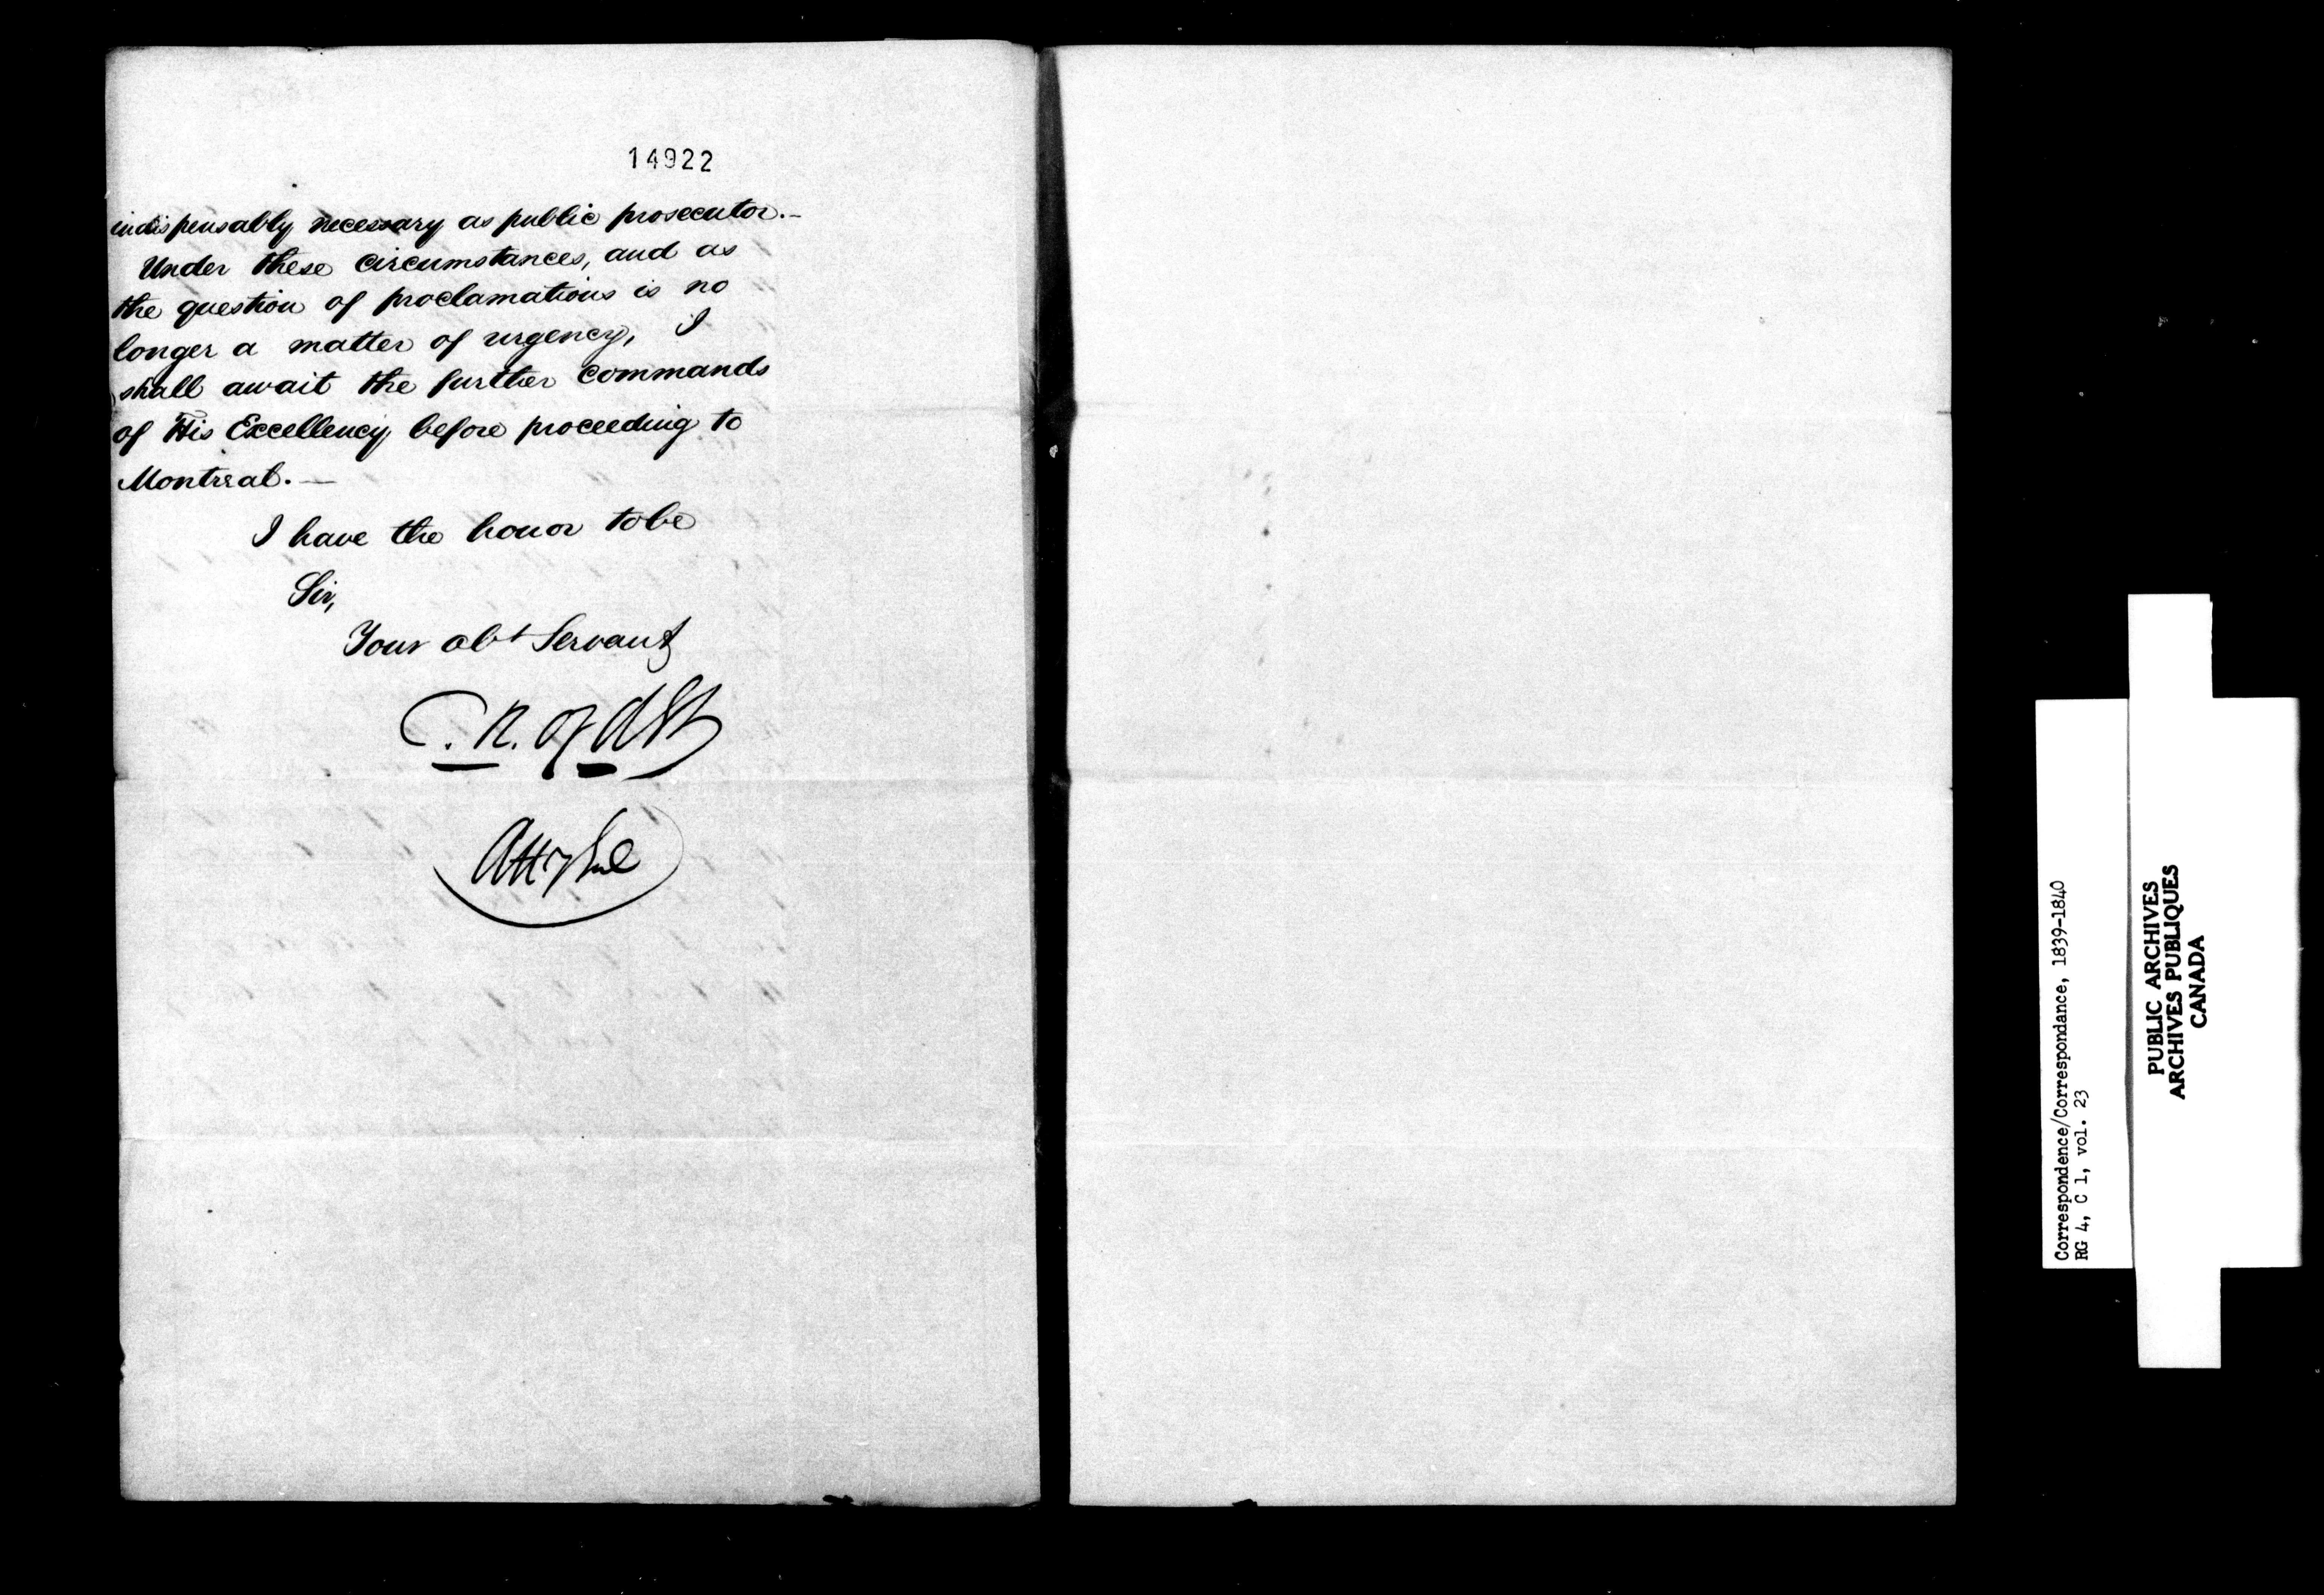 14922
indispensably necessary as public prosecutor.—
Under these circumstances, and as
the question of proclamations is no
longer a matter of urgency, I
shall await the further commands
of His Excellency before proceeding to
Montreal.—
I have the honor to be
Sir,
Your obt Servant
C. R. Ogden
Atty Genl
Correspondence/Correspondance, 1839-1840
RG 4, C 1, vol. 23
PUBLIC ARCHIVES
ARCHIVES PUBLIQUES
CANADA